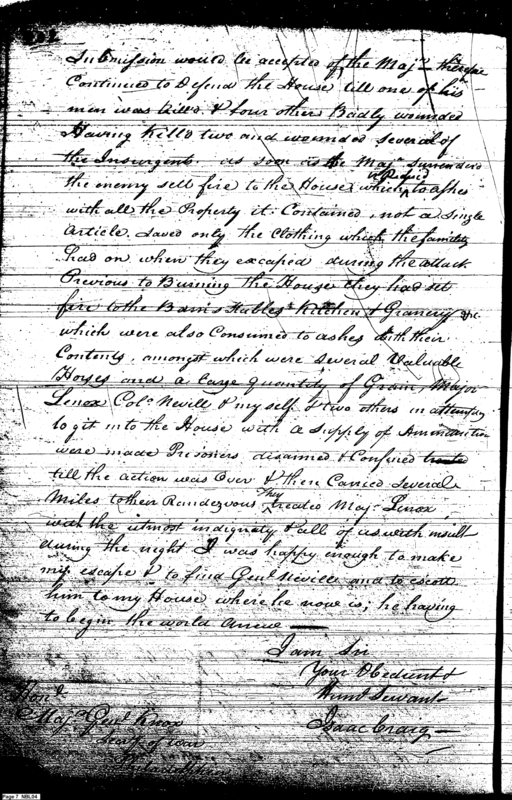 Submission would be accepted of, the Majr. therefore
Continued to Defend the House till one of his
men was kill'd & four others Badly wounded
Having kill'd two and wounded several of
the Insurgents. as soon as the Majr. Surrendered
the enemy sett fire to the House which is Reduced to ashes
with all the Property it Contained, not a single
article saved only the Clothing which the family
had on when they escaped during the attack.
Previous to Burning the House they had set
fire to the Barns Stables Kitchen & Granery &c.
which were also Consumed to ashes with their
Contents, amongst which were several Valuable
Horses and a large quantity of Grain, Major
Lenox Colo. Nevill & myself & two others in attempting
to get into the House with a supply of Ammunition
were made Prisoners disarmed & Confined
till the action was Over & then Carried several
Miles to their Rendezvous they treated Majr. Lenox
with the utmost indignety & all of us with insult
during the night I was happy enough to make
my escape & to find Genl. Neville and to escort
him to my House where he now is; he having
to begin the world anew
I am Sir
Your Obedient &
Humb Servant
Isaac Craig
Honl.
Majr. Genl. Knox
Secry of War
Philadelphia
Page 7 NBL04